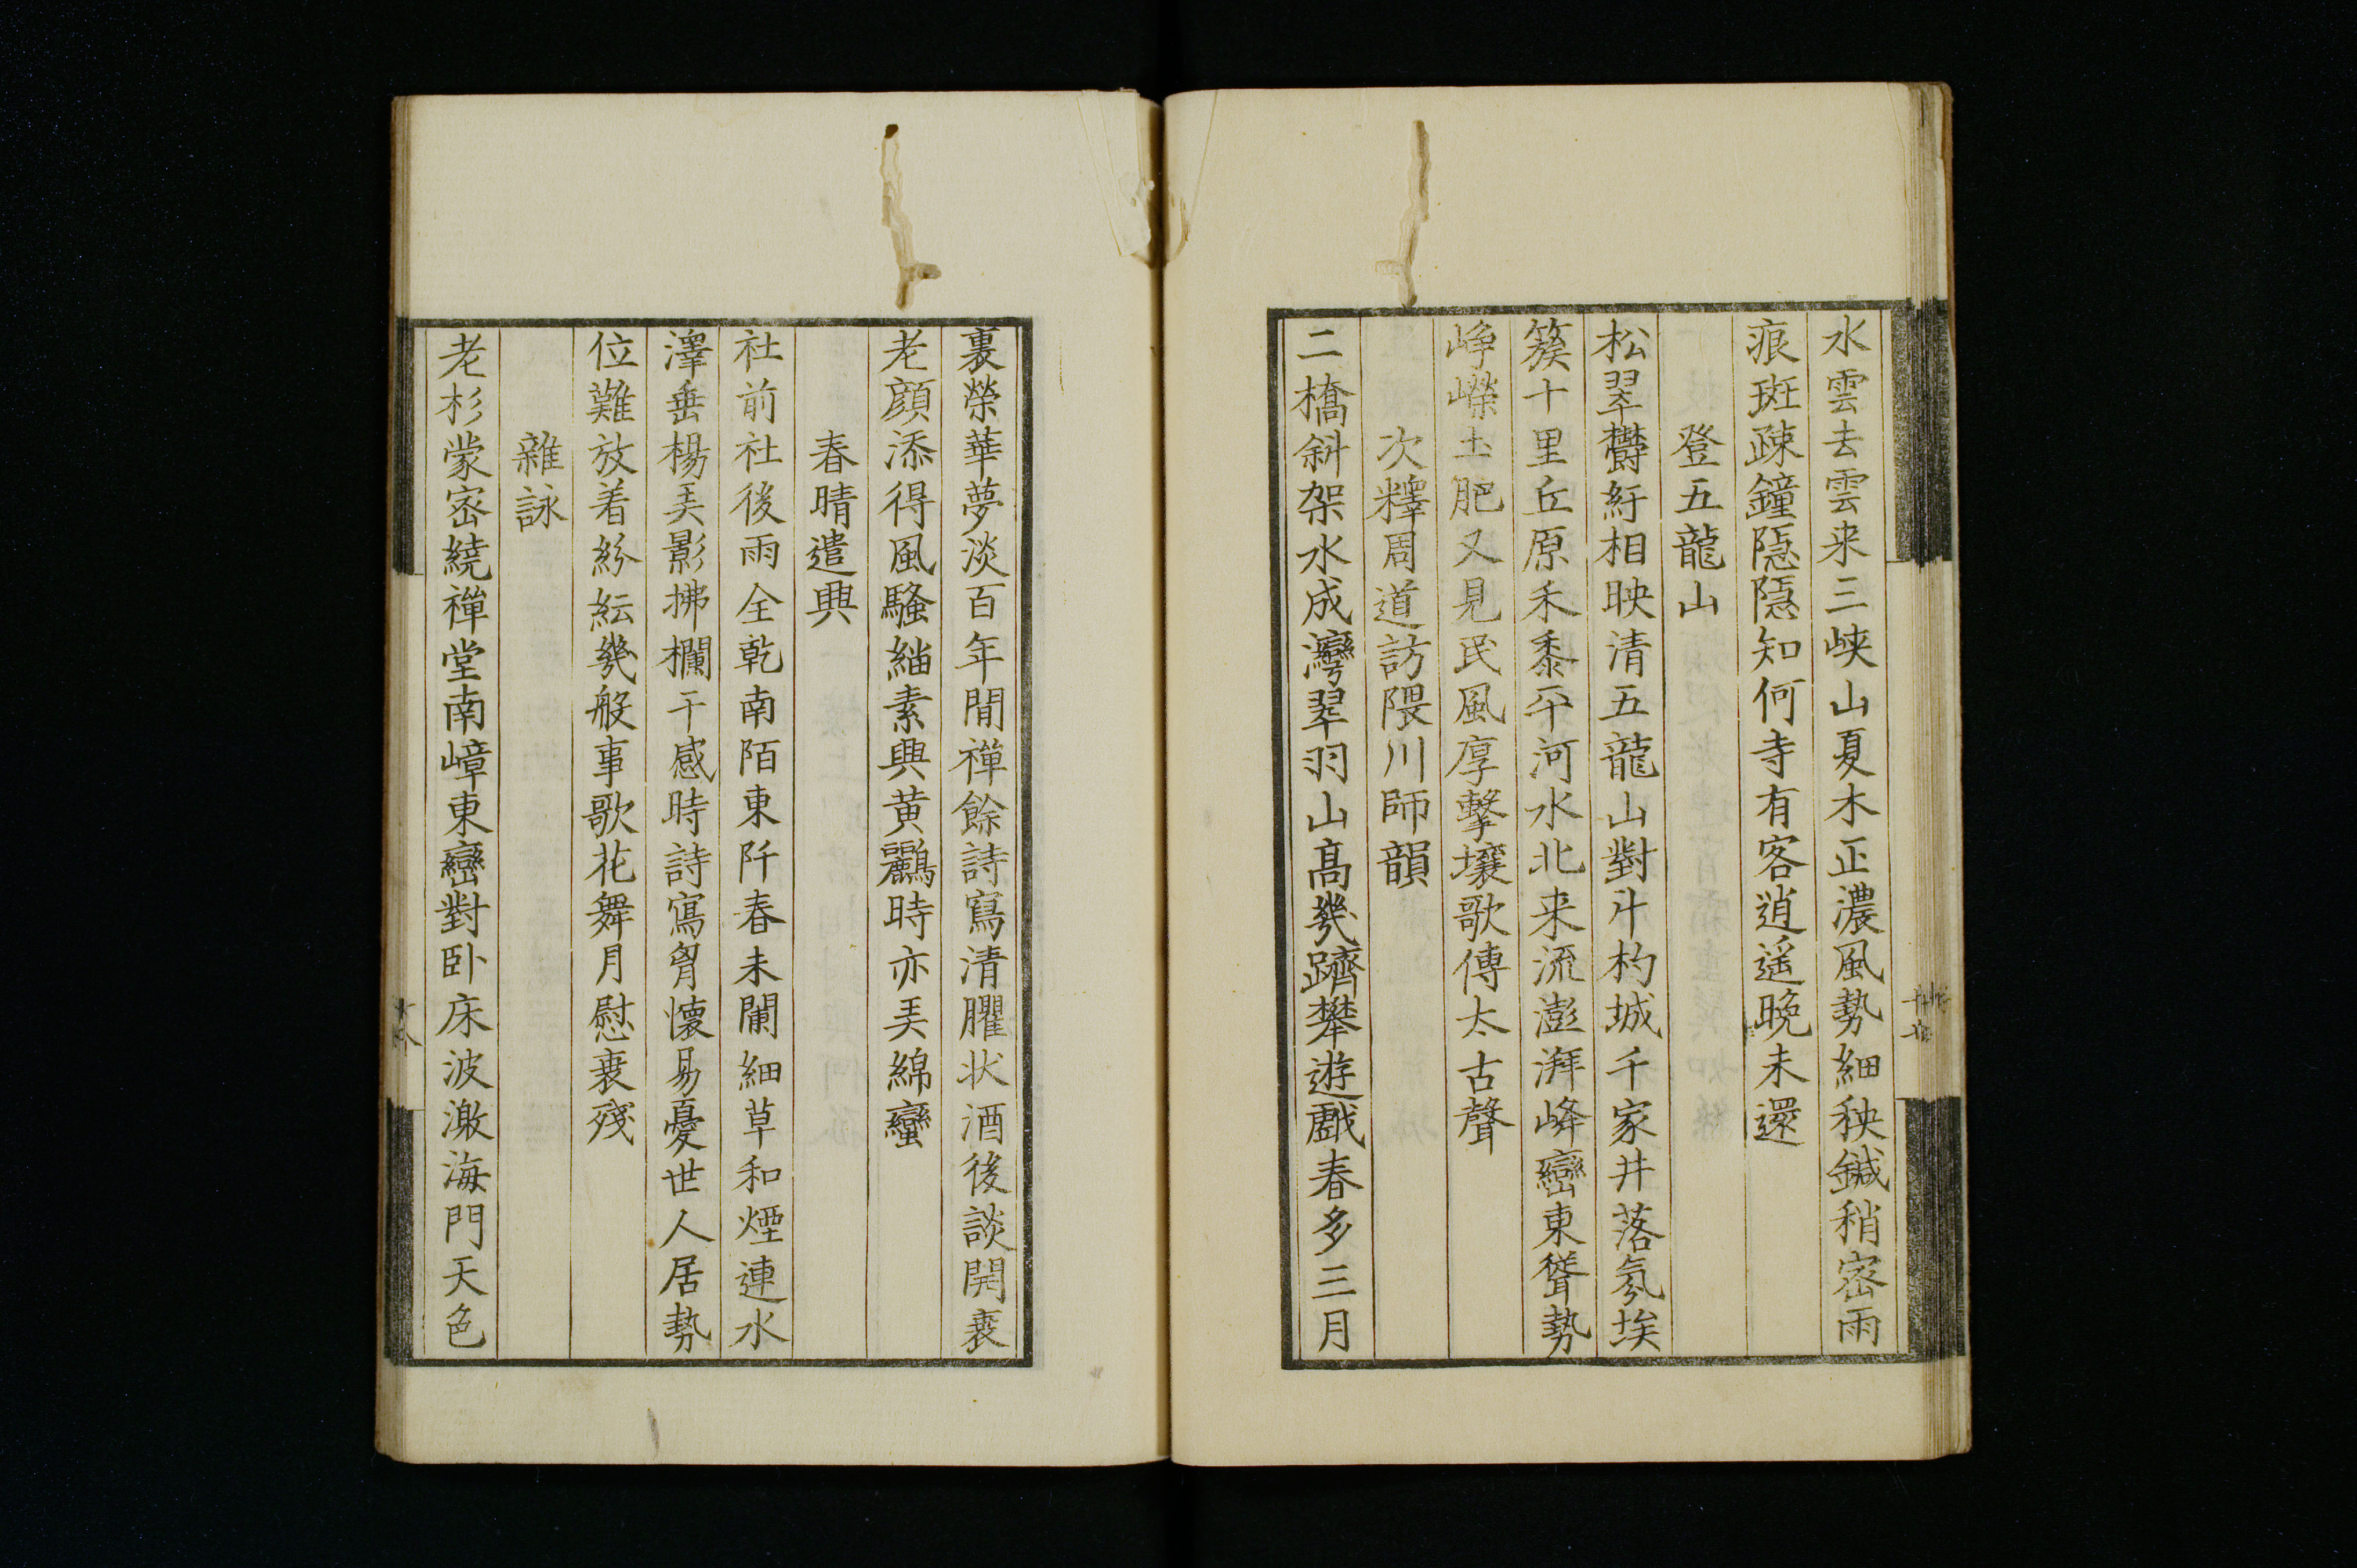 水雲去雲来三峡山夏木正濃風勢細秧鍼稍密雨
痕斑疎鐘隠隠知何寺有客逍遥晩未還
登五龍山
松翠欝紆相映清五龍山對斗杓城千家井落氛埃
簇十里丘原禾黍平河水北来流澎湃峰巒東聳勢
崢嶸土肥又見民風厚撃壌歌傳太古聲
次釋周道訪隈川師韻
二橋斜架水成灣翠羽山髙㡬躋攀遊戯春多三月
裏榮華夢淡百年間禅餘詩寫清臞状酒後談開衰
老顔添得風騷緇素興黄鸝時亦弄綿蠻
春晴遣興
社前社後雨全乾南陌東阡春未闌細草和煙連水
澤垂楊弄影拂欄干感時詩寫胷懐易憂世人居勢
位難放着紛紜㡬般事歌花舞月慰衰殘
雜詠
老杉蒙密繞禅堂南嶂東巒對臥床波激海門天色